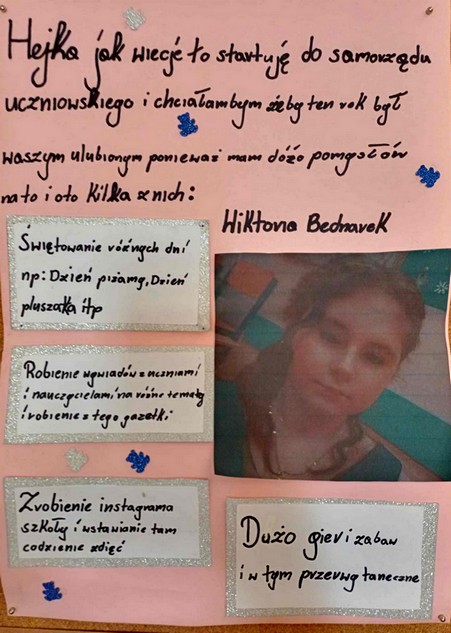 Hejka jak wiecje to startuję do samorządu
uczniowskiego i chciałambym żeby ten rok był
waszym ulubionym ponieważ mam dóżo pomysłów
na to i oto kilka z nich:
Wiktoria Bednarek
Świętowanie różnych dni
np: Dzień piżamy, Dzień
pluszaka itp
Robienie wywiadów z uczniami
i nauczycielami na różne tematy
i robienie z tego gazetki
Zrobienie instagrama
szkoły i wstawianie tam
codzienie zdjęć
Dużo gier i zabaw
i w tym przerwy taneczne